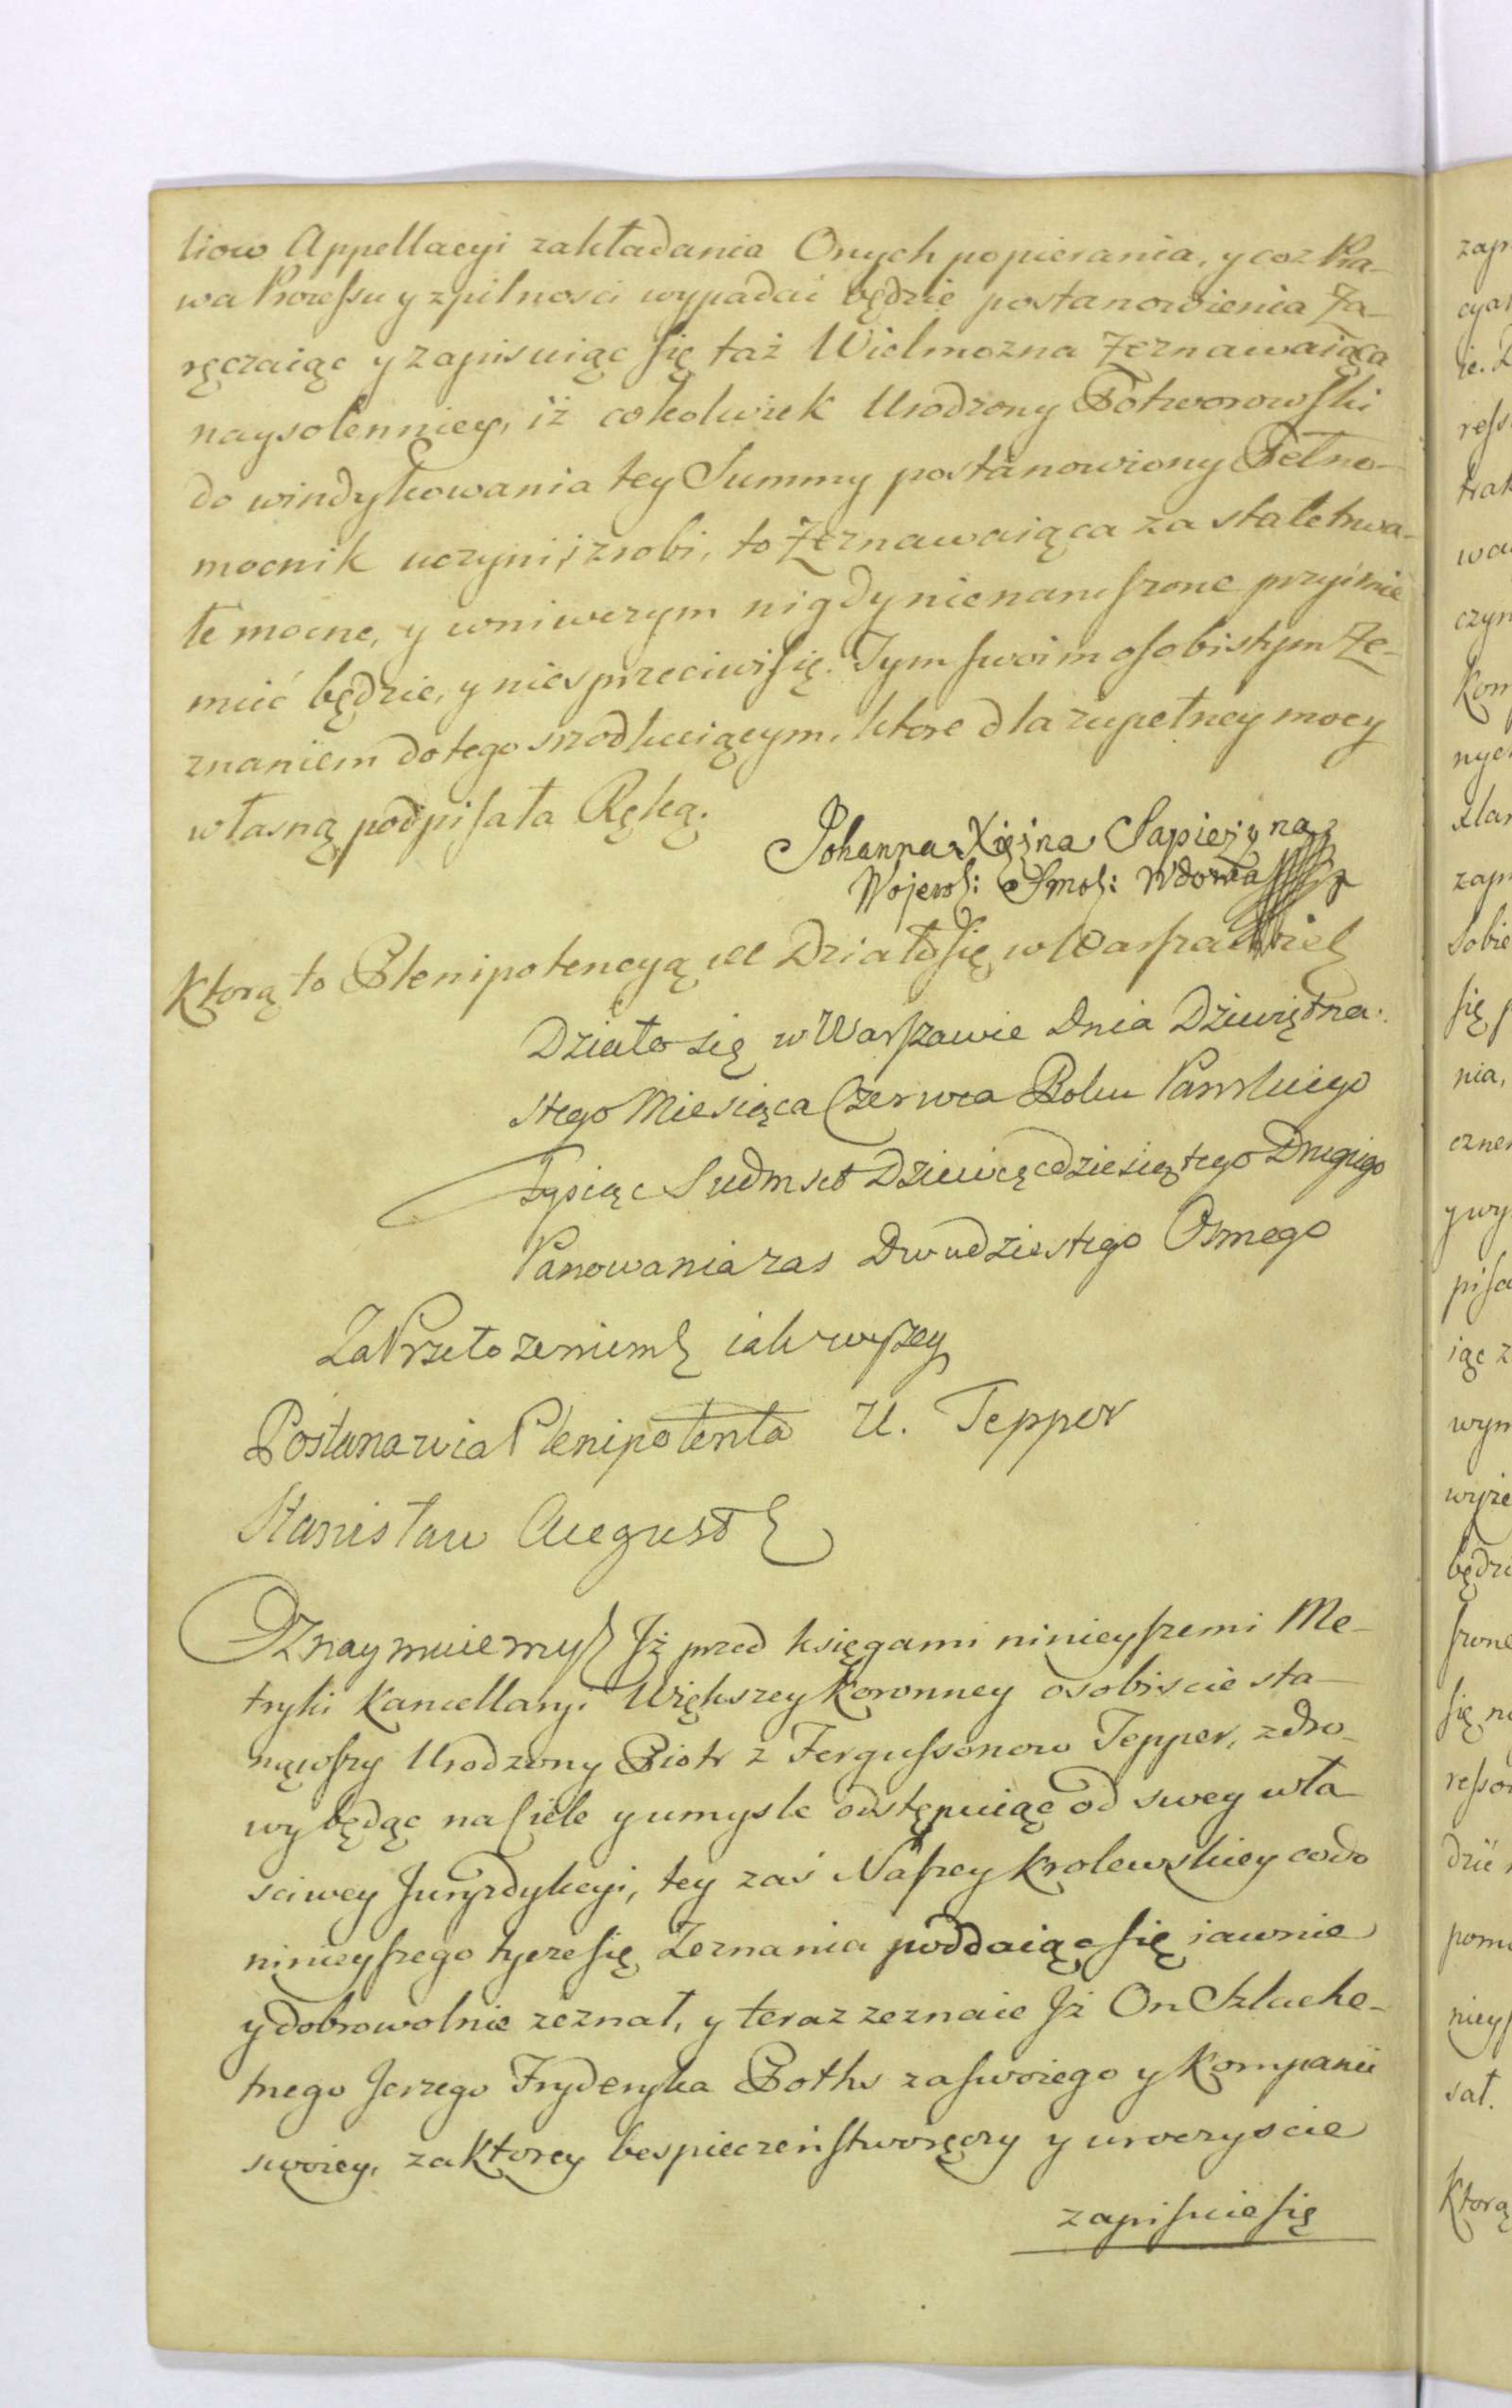 tiow Appellacyi zakładania Onych popierania, y co z Pra-
wa Processu y z pilnosci wypadać będzie postanowienia Za-
ręczaiąc y zapisuiąc się taż Wielmozna Zeznawaiąca
naysolenniey, iż cokolwiek Urodzony Potworowski
do windykowania tey Summy postanowiony Pełno-
mocnik uczyni, i zrobi, to Zeznawaiąca za stałe trwa-
łe mocne, y w niwczym nigdy nienaruszone przyimie
muć będzie, y nie sprzeciwi się. Tym swoim osobistym Ze-
znaniem do tego srzodkuiącym, ktore dla zupełney mocy
własną podpisała Ręką.
Johanna Xiężna Sapieżyna
Wojewol: Smol: Wdowa
Ktorą to Plenipotencyą etc Działo się w Warszawie
Działo się w Warszawie Dnia Dziewiętna-
stego Miesiąca Czerwca Roku Panskiego
Tysiąc Siedmset Dziewięcdziesiątego Drugiego
Panowania zas Dwudziestego Osmego
Za Przełozeniem iak wyszey
Postanawia Plenipotenta U. Tepper
Stanisław August
Oznaymuiemy Iż przed księgami ninieyszemi Me-
tryki Kancellaryi Większey Koronney osobiscie sta-
nąwszy Urodzony Piotr z Fergussonow Tepper, zdro-
wy będąc na Ciele y umysle odstępuiąc od swey wła-
sciwey Juryzdykcyi, tey zaś Naszey Krolewskiey co do
ninieyszego tycze się Zeznania poddaiąc się iawnie
y dobrowolnie zeznał, y teraz zeznaie Iż On Szlache-
tnego Jerzego Fryderyka Poths za swoiego y Kompanii
swoiey, za ktorey bespieczeństwo ręczy y uroczyscie
zapisuie się